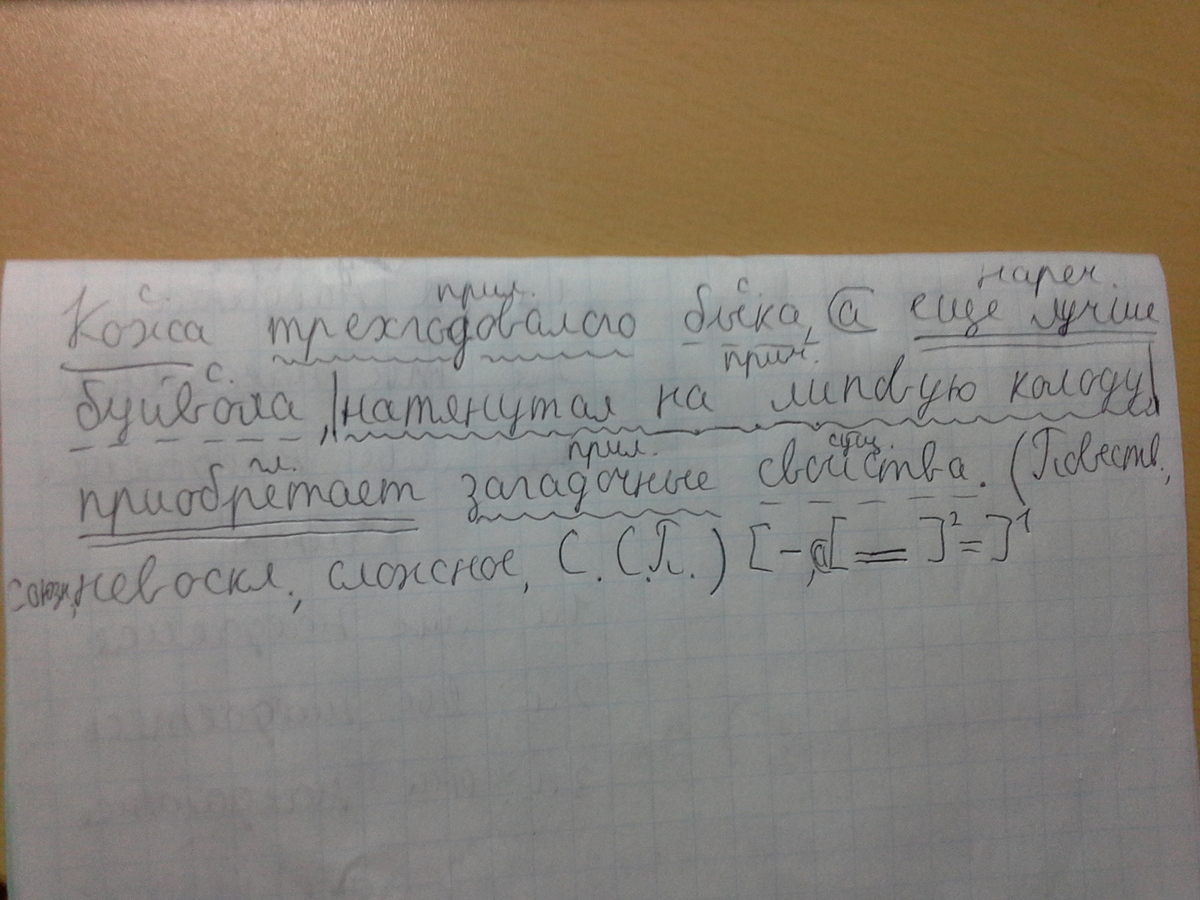 с. прил. с. нареч.
Кожа трехгодовалого быка, а еще лучше
с. прич.
буйвола, натянутая на липовую колоду,
гл. прил. сущ.
приобретает загадочные свойства. (Повеств.,
союзн, невоскл., сложное, С.С.П.) [-, а[=]²=]¹